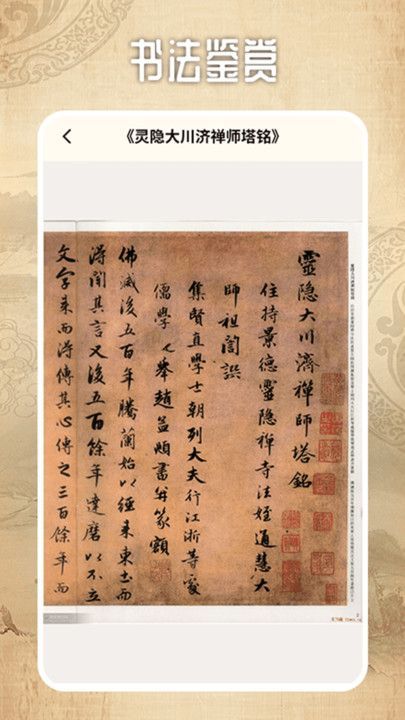 书法鉴赏
《灵隐大川济禅师塔铭》
靈隐大川濟禪師塔銘
住持景德靈隐禪寺法姪道慧大
師祖誾譔
集賢直學士朝列大夫行江浙等處
儒學 趙孟頫書并篆額
佛滅後五百年騰蘭始以經来東土而
得聞其言又後五百餘年達磨以不立
文字来而得傳其心傳之三百餘年而